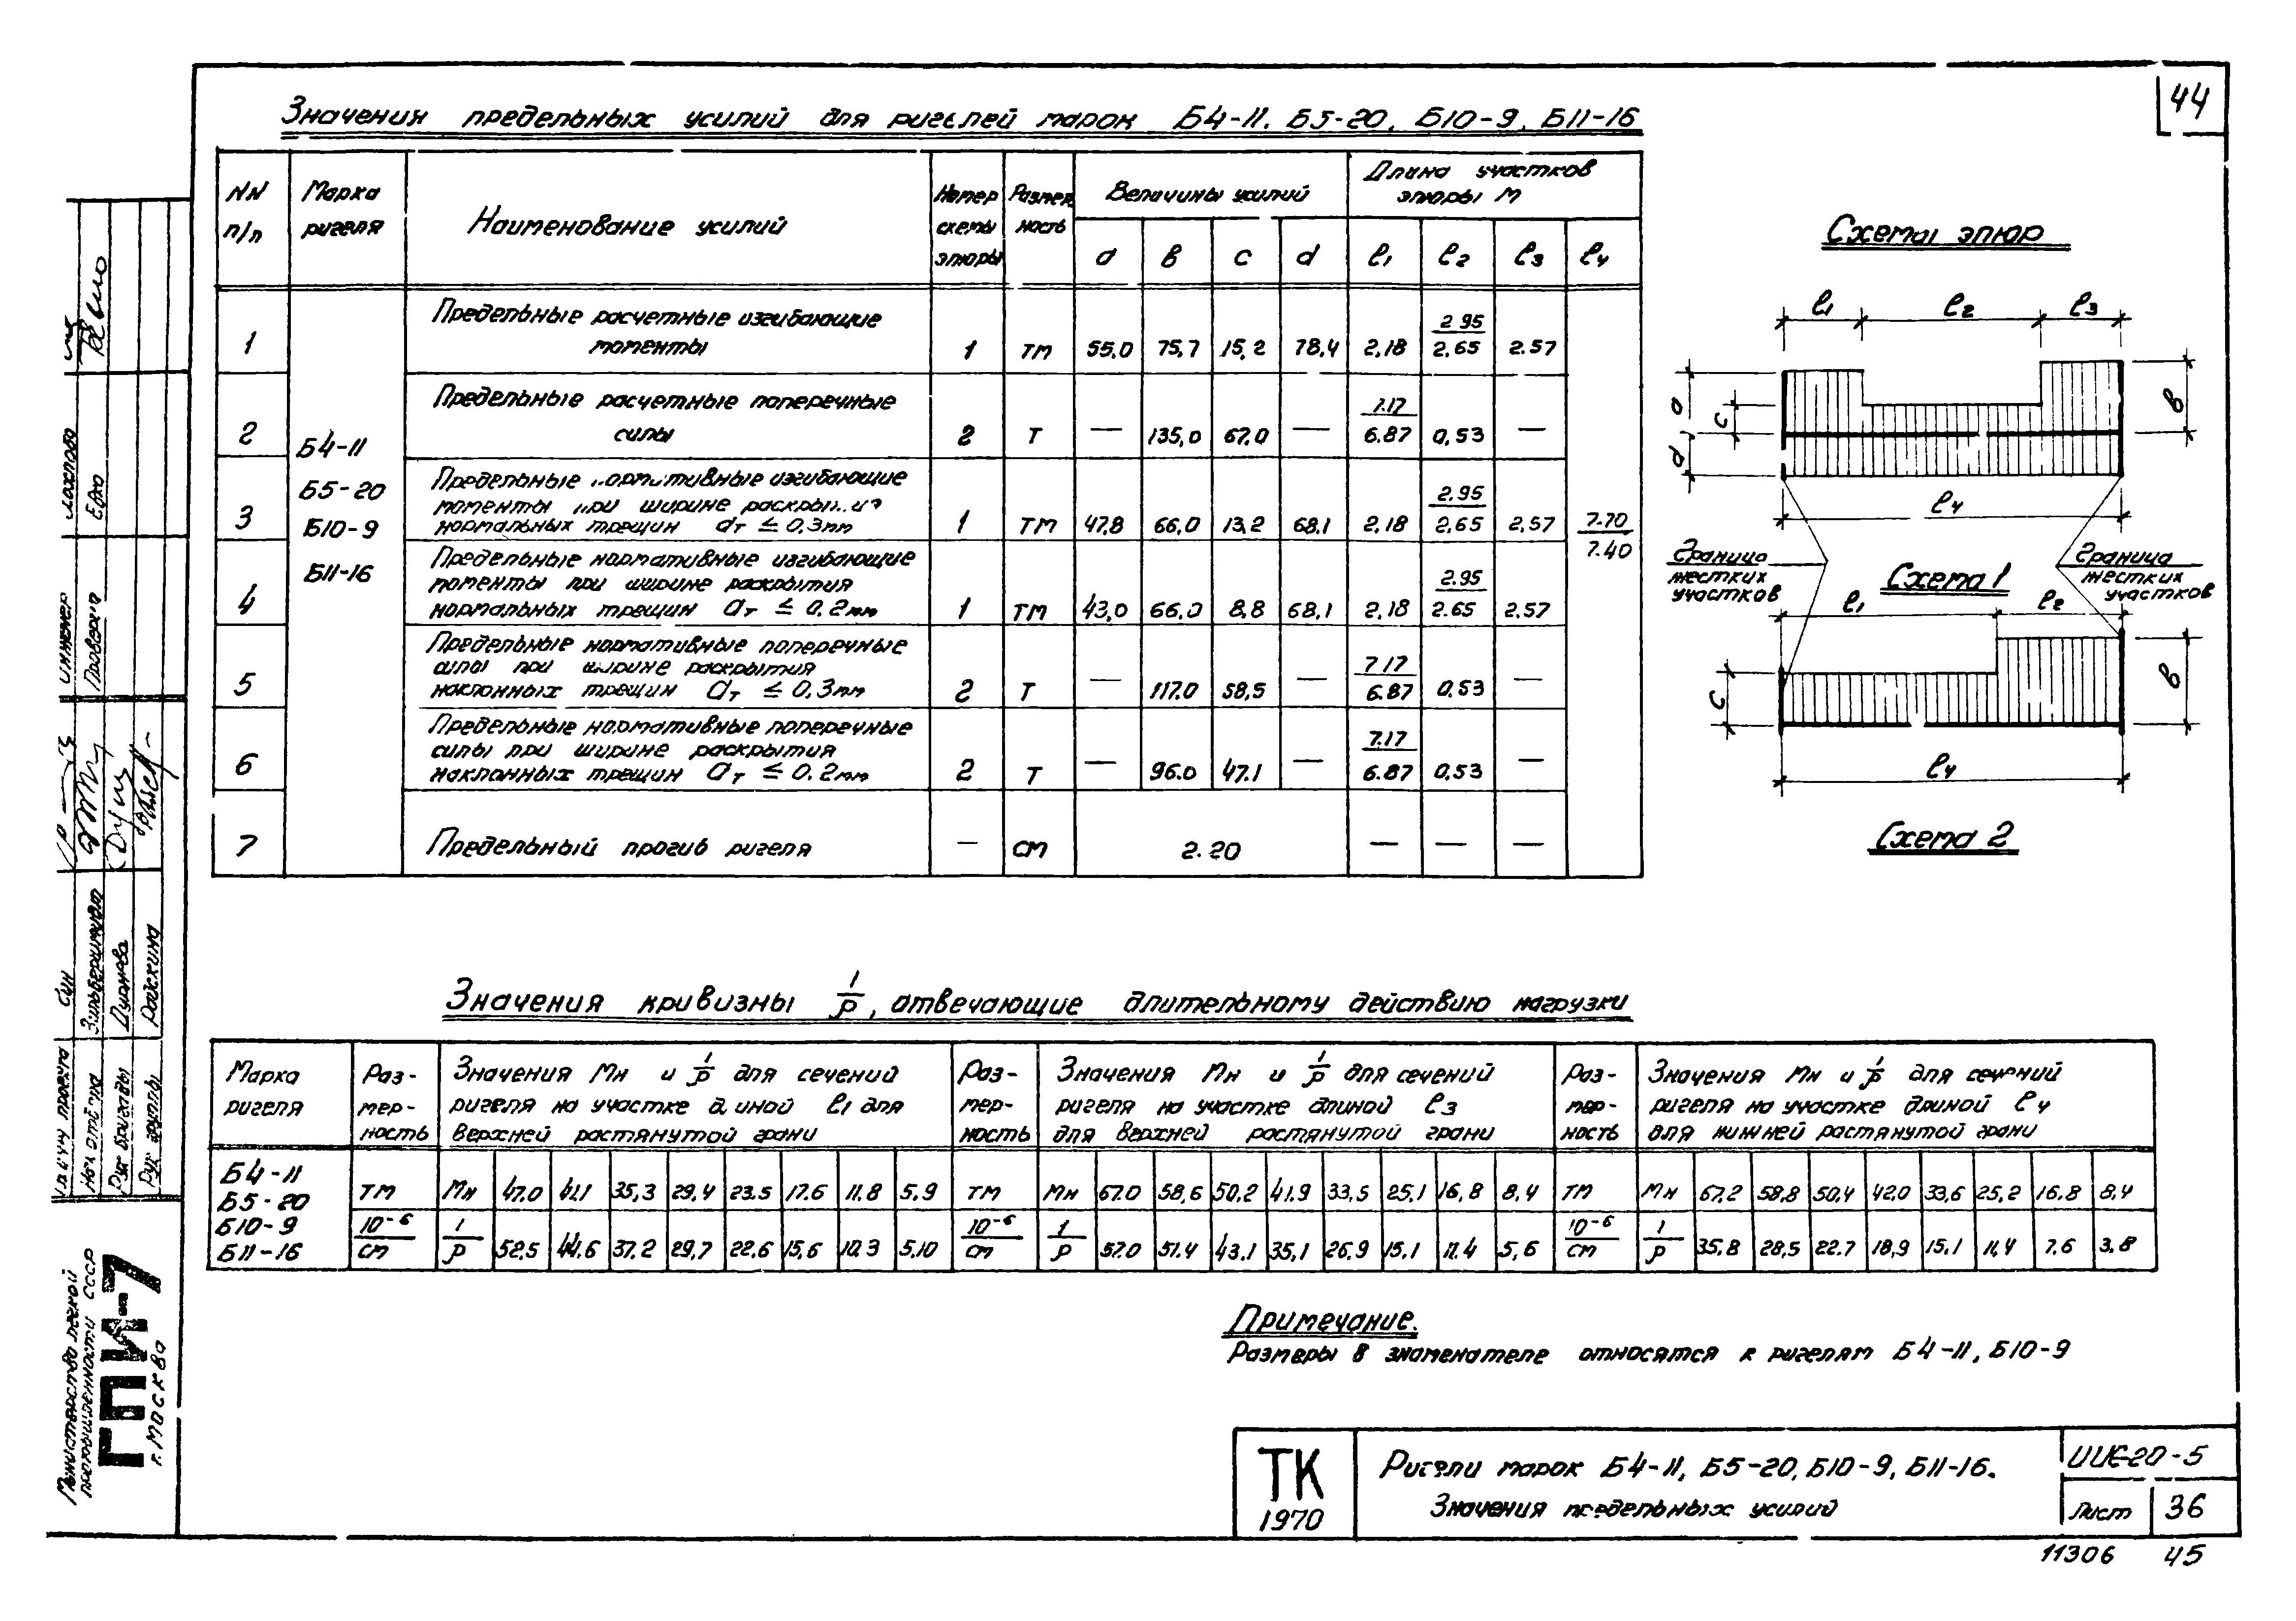 44
Значения предельных усилий для ригелей марок Б4-11, Б5-20, Б10-9, Б11-16
NN п/п
Марка ригеля
Наименование усилий
Номер схемы эпюры
Размерность
Величины усилий
Длина участков эпюры м
a b c d ℓ1 ℓ2 ℓ3 ℓ4
Б4-11
Б5-20
Б10-9
Б11-16
1 Предельные расчетные изгибающие моменты 1 тм 55,0 75,7 15,2 78,4 2,18 2.95/2.65 2.57
2 Предельные расчетные поперечные силы 2 т — 135,0 67,0 — 7.17/6.87 0,53 —
3 Предельные нормативные изгибающие моменты при ширине раскрытия нормальных трещин aт ≤ 0,3мм 1 тм 47,8 66,0 13,2 68,1 2,18 2.95/2,65 2,57
7.70/7.40
4 Предельные нормативные изгибающие моменты при ширине раскрытия нормальных трещин aт ≤ 0.2мм 1 тм 43,0 66.0 8,8 68,1 2,18 2.95/2.65 2.57
5 Предельные нормативные поперечные силы при ширине раскрытия наклонных трещин aт ≤ 0,3мм 2 т — 117.0 58,5 — 7.17/6.87 0,53 —
6 Предельные нормативные поперечные силы при ширине раскрытия наклонных трещин aт ≤ 0.2мм 2 т — 96.0 47.1 — 7.17/6.87 0,53 —
7 Предельный прогиб ригеля — см 2.20 — — —
Схемы эпюр
ℓ1 ℓ2 ℓ3
a c d b
ℓ4
Граница жестких участков
Схема 1
Граница жестких участков
ℓ1 ℓ2
c b
ℓ4
Схема 2
Значения кривизны 1/ρ, отвечающие длительному действию нагрузки
Марка ригеля
Размерность
Значения Mн и 1/ρ для сечений ригеля на участке длиной ℓ1 для верхней растянутой грани
Размерность
Значения Mн и 1/ρ для сечений ригеля на участке длиной ℓ3 для верхней растянутой грани
Размерность
Значения Mн и 1/ρ для сечений ригеля на участке длиной ℓ4 для нижней растянутой грани
Б4-11
Б5-20
Б10-9
Б11-16
тм Mн 47.0 41.1 35,3 29,4 23.5 17.6 11.8 5.9 тм Mн 67.0 58,6 50,2 41.9 33,5 25,1 16,8 8,4 тм Mн 67.2 58,8 50,4 42.0 33,6 25,2 16.8 8.4
10⁻⁶/см 1/ρ 52.5 44.6 37.2 29,7 22.6 15,6 10.3 5,10 10⁻⁶/см 1/ρ 57.0 51.4 43.1 35,1 26.9 15.1 11.4 5,6 10⁻⁶/см 1/ρ 35,8 28,5 22.7 18,9 15,1 11,4 7.6 3.8
Примечание.
Размеры в знаменателе относятся к ригелям Б4-11, Б10-9
ТК
1970
Ригели марок Б4-11, Б5-20, Б10-9, Б11-16.
Значения предельных усилий
ИИ20-5
Лист 36
11306 45
инженер
Проверил
Рук. бригады
Рук. группы
Райскина
Министерство легкой промышленности СССР
ГПИ-7
г. Москва